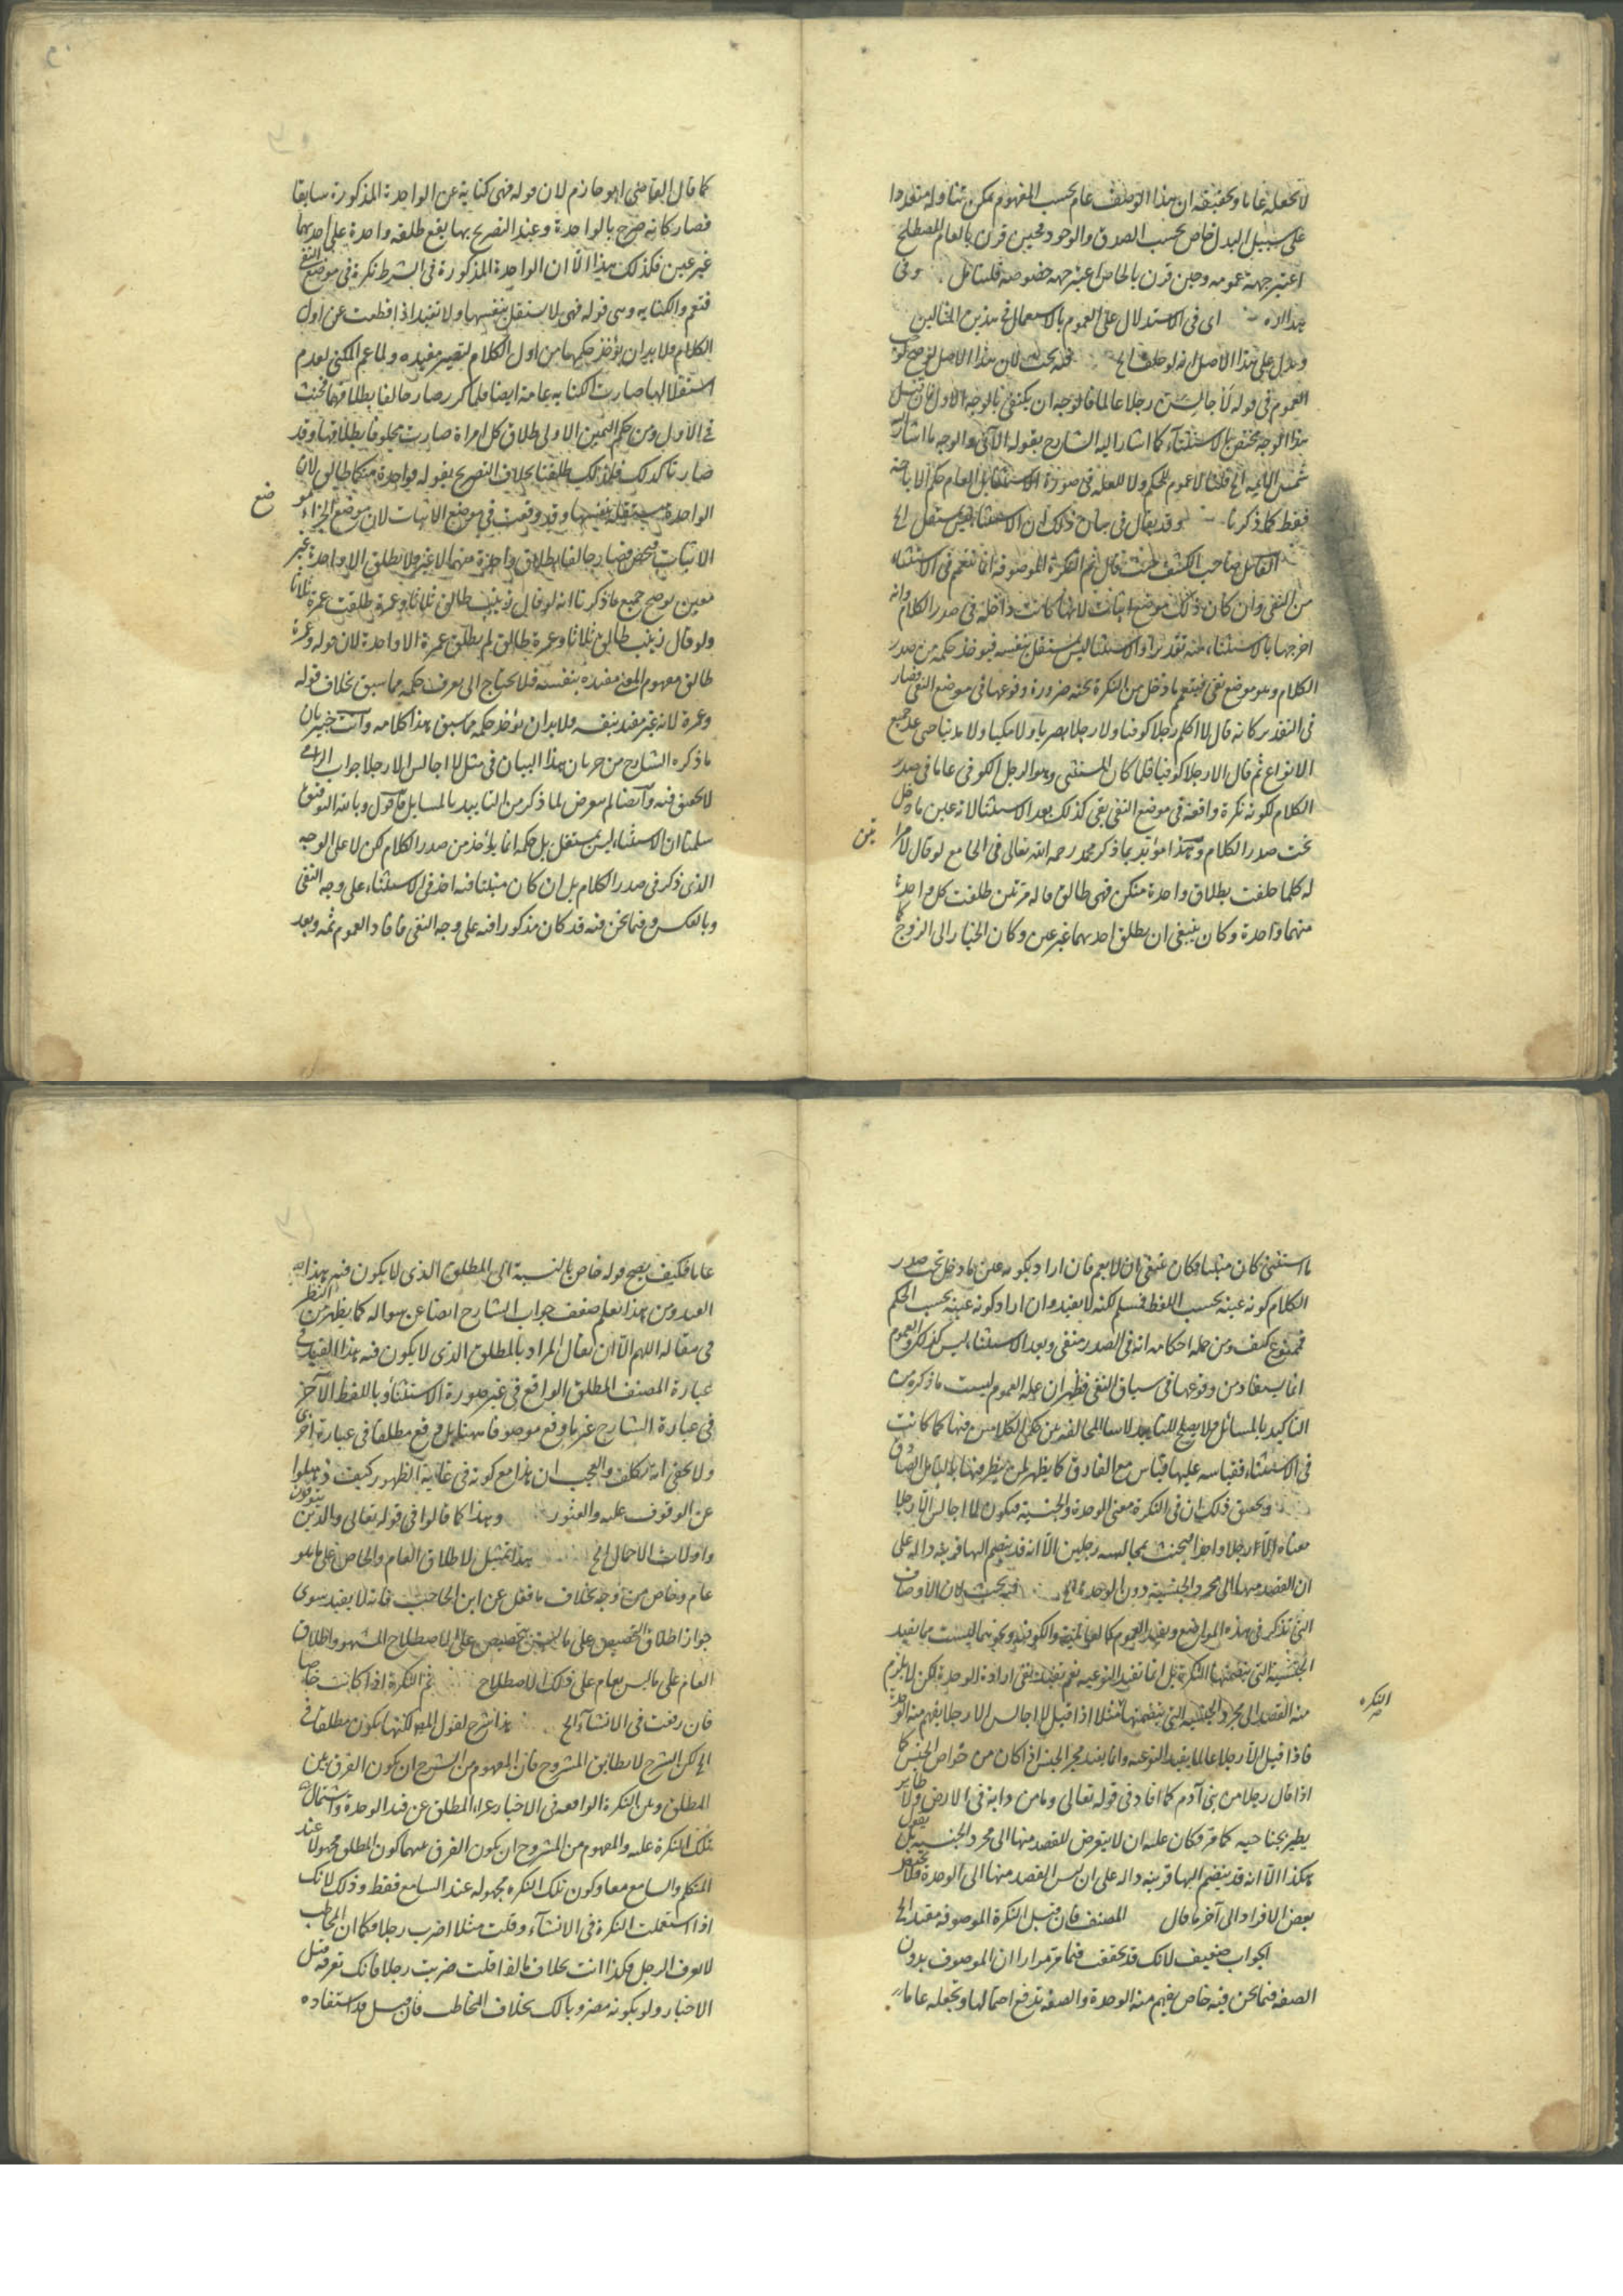 لا تجعله عاما وتحقيقه ان هذا الوصف عام بحسب المفهوم يمكن تناوله متعددا
على سبيل البدل خاص بحسب الصدق والوجود فحين قرن بالعام المصطلح
اعتبر جهة عمومه وحين قرن بالخاص اعتبر جهة خصوصه فليتأمل وفى
هذا الاه اى فى الاستدلال على العموم بالاستعمال فى هذين المثالين
ويدل على هذا الاصل انه لو حلف الخ فيه بحث لان هذا الاصل لو صح لو
العموم فى قوله لا اجالس رجلا عالما فالوجه ان يكتفى بالوجه الاول فان قيل
هذا الوجه مختص بالاستثناء كما اشار اليه الشارح بقوله الآتى والوجه ما اشار
شمس الائمة الخ قلنا لا عموم للحكم ولا للعلة فى صورة الاستثناء بل العام حكم الاباحة
فقط كما ذكرنا وقد يقال فى بيان ذلك ان الاستثناء ليس يستقل الخ
القائل صاحب الكشف حيث قال ثم النكرة الموصوفة انما تعم فى الاستثناء
من النفى وان كان ذلك موضع اثبات لانها كانت داخلة فى صدر الكلام وانه
اخرجها بالاستثناء منه تقديرا والاستثناء ليس يستقل بنفسه فيؤخذ حكمه من صدر
الكلام وهو موضع نفى فيتعمم ما دخل من النكرة تحته ضرورة وقوعها فى موضع النفى فصار
فى التقدير كانه قال لا اكلم رجلا كوفيا ولا رجلا بصريا ولا مكيا ولا مدنيا حتى عد جميع
الانواع ثم قال الا رجلا كوفيا فلما كان المستثنى وهو الرجل الكوفى عاما فى صدر
الكلام لكونه نكرة واقعة فى موضع النفى بقى كذلك بعد الاستثناء لانه عين ما دخل
تحت صدر الكلام وهذا مؤيد بما ذكر محمد رحمه الله تعالى فى الجامع لو قال لامرا تين
له كلما حلفت بطلاق واحدة منكن فهى طالق قاله مرتين طلقت كل واحدة
منهما واحدة وكان ينبغى ان يطلق احديهما غير عين وكان الخيار الى الزوج كما
كما قال القاضى ابو حازم لان قوله فهى كناية عن الواحدة المذكورة سابقا
فصار كانه صرح بالواحدة وعند التصريح بها يقع طلقة واحدة على احديهما
غير عين فكذلك هذا الا ان الواحدة المذكورة فى الشرط نكرة فى موضع النفى
فتعم والكناية وهى قوله فهى لا يستقل بنفسها ولا تفيد اذا قطعت عن اول
الكلام فلا بد ان يؤخذ حكمها من اول الكلام لتصير مفيده ولما عم المكنى لعدم
استقلالها صارت الكناية عامة ايضا فلما كرر صار حالفا بطلاقهما فحنث
فى الاول ومن حكم اليمين الاولى طلاق كل امراة صارت محلوفا بطلاقها وقد
صارتا كذلك فلذلك طلقتا بخلاف التصريح بقوله فواحدة منكما طالق لان
الواحدة مستقلة بنفسها وقد وقعت فى موضع الاثبات لان موضع الجزاء موضع
الاثبات فخص فصار حالفا بطلاق واحدة منهما لا غير فلا يطلق الا واحدة غير
معين يوضح جميع ما ذكرنا انه لو قال زينب طالق ثلاثا وعمرة طلقت عمرة ثلاثا
ولو قال زينب طالق ثلاثا وعمرة طالق لم يطلق عمرة الا واحدة لان قوله وعمرة
طالق مفهوم المعنى مفيده بنفسه فلا يحتاج الى تعرف حكمه مما سبق بخلاف قوله
وعمرة لانه غير مفيد بنفسه فلا بد ان يؤخذ حكمه مما سبق هذا كلامه وانت خبير بان
ما ذكره الشارح من جريان هذا البيان فى مثل لا اجالس الا رجلا جواب الزامى
لا تحقيق فيه وايضا لم يتعرض لما ذكر من التاييد بالمسايل فاقول وبالله التوفيق
سلمنا ان الاستثناء ليس يستقل بل حكمه انما يؤخذ من صدر الكلام لكن لا على الوجه
الذى ذكر فى صدر الكلام بل ان كان مثبتا فيه اخذ فى الاستثناء على وجه النفى
وبالعكس وفيما نحن فيه قد كان مذكورا فيه على وجه النفى فافاد العموم ثمه وبعد
ما استثنى كان مثبتا وكان ينبغى ان لا يعم فان اراد بكونه عين ما دخل تحت صدر
الكلام كونه عينه بحسب اللفظ فمسلم لكنه لا يفيد وان اراد كونه عينه بحسب الحكم
فممنوع كيف ومن جملة احكامه انه فى الصدر منفى وبعد الاستثناء ليس كذلك والعموم
انما يستفاد من وقوعها فى سياق النفى فظهر ان علة العموم ليست ما ذكره من
التاكيد بالمسائل فلا يصلح للتاييد لاسا المخالفة بين حكمى الكلامين فيها كما كانت
فى الاستثناء فقياسه عليها قياس مع الفارق كما يظهر لمن ينظر فيها بالتأمل الصادق
وتحقيق ذلك ان فى النكرة معنى الوحدة والجنسية فيكون لا اجالس الا رجلا
معناه الا رجلا واحدا فيحنث بمجالسة رجلين الا انه قد ينضم اليها قرينة دالة على
ان القصد منها الى مجرد الجنسية دون الوحدة الخ فيه بحث لان الاوصاف
التى تذكر فى هذه المواضع ويفيد العموم كالعالمية والكوفية ونحوهما ليست مما يفيد
الجنسية التى يتضمنها النكرة بل انما تفيد النوعية نعم تفيد نفى ارادة الوحدة لكن لا يلزم
منه القصد الى مجرد الجنسية التى يتضمنها النكرة مثلا اذا قيل لا اجالس الا رجلا يفهم منه الوحدة
فاذا قيل الا رجلا عالما يفيد النوعية وانما يفيد مجرد الجنس اذا كان من خواص الجنس كما
اذا قال رجلا من بنى آدم كما افاد فى قوله تعالى وما من دابة فى الارض ولا طاير
يطير بجناحيه كما مر فكان عليه ان لا يتعرض للقصد منها الى مجرد الجنسية بل يقول
هكذا الا انه قد ينضم اليها قرينة دالة على ان ليس القصد منها الى الوحدة فلا يختص
ببعض الافراد الى آخر ما قال المصنف فان قيل النكرة الموصوفة مقيد الخ
الجواب ضعيف لانك قد تحققت فيما مر مرارا ان الموصوف بدون
الصفة فيما نحن فيه خاص يفهم منه الوحدة والصفة تدفع احتمالها وتجعله عاما
عاما فكيف يصح قوله خاص بالنسبة الى المطلق الذى لا يكون فيه هذا
القيد ومن هذا تعلم ضعف جواب الشارح ايضا عن سواله كما يظهر من النظر
فى مقاله اللهم الا ان يقال المراد بالمطلق الذى لا يكون فيه هذا القيد فى
عبارة المصنف المطلق الواقع فى غير صورة الاستثناء وباللفظ الآخر
فى عبارة الشارح غير ما وقع موصوفا ههنا بل وقع مطلقا فى عبارة اخرى
ولا يخفى انه تكلف والعجب ان هذا مع كونه فى غاية الظهور كيف ذهلوا
عن الوقوف عليه والعثور وهذا كما قالوا فى قوله تعالى والذين يتوفون
واولات الاحمال الخ هذا تمثيل لاطلاق العام والخاص على ما هو
عام وخاص من وجه بخلاف ما نقل عن ابن الحاجب فانه لا يفيد سوى
جواز اطلاق التخصيص على ما ليس بتخصيص على الاصطلاح المشهور واطلاق
العام على ما ليس بعام على ذلك الاصطلاح ثم النكرة اذا كانت خاصا
فان وقعت فى الانشاء الخ هذا شرح لقول المص لكنها يكون مطلقا فى
الخ لكن الشرح لا يطابق المشروح فان المفهوم من الشرح ان يكون الفرق بين
المطلق وبين النكرة الواقعة فى الاخبار عراء المطلق عن قيد الوحدة واشتمال
تلك النكرة عليه والمفهوم من المشروح ان يكون الفرق بينهما كون المطلق مجهولا عند
المتكلم والسامع معا وكون تلك النكرة مجهولة عند السامع فقط وذلك لانك
اذا استعملت النكرة فى الانشآء وقلت مثلا اضرب رجلا فكما ان المخاطب
لا يعرف الرجل فكذا انت بخلاف ما اذا قلت ضربت رجلا فانك تعرفه قبل
الاخبار ولو بكونه مضروبا لك بخلاف المخاطب فان قيل قد استفاده